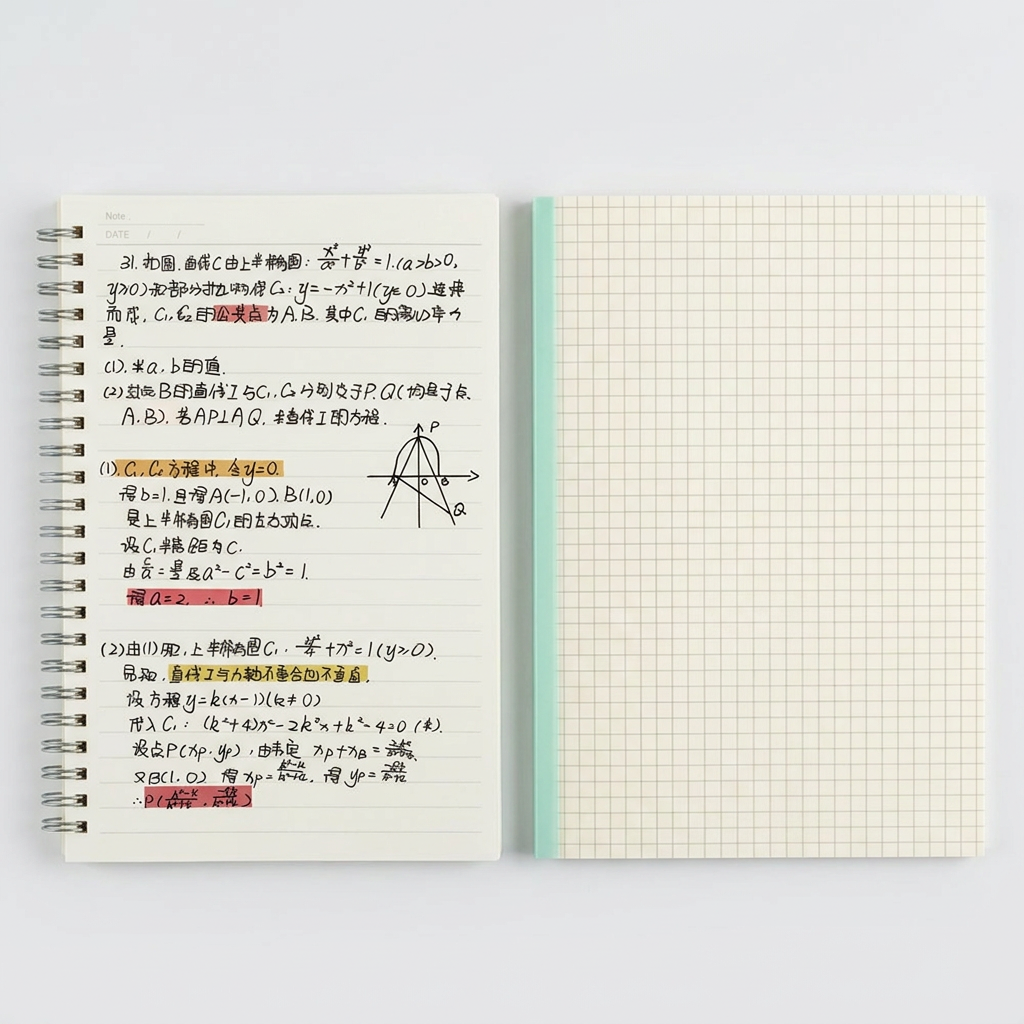 Note.
DATE / /
31. 如图.曲线C由上半椭圆: + = 1.(a>b>0,
y≥0)和部分抛物线C₂: y=-x²+1(y≤0)连接
而成. C₁,C₂的公共点为A.B. 其中C₁的离心率为
(1).求a.b的值.
(2)过点B的直线I与C₁.C₂分别交于P.Q(均异于点
A.B). 若AP⊥AQ. 求直线I的方程.
P
A
O
B
Q
(1).C₁.C₂方程中.令y=0.
得b=1.且得A(-1,0).B(1,0)
是上半椭圆C₁的左右顶点.
设C₁半焦距为C.
由 = 及a²-C²=b²=1.
得a=2. ∴ b=1
(2)由(1)知,上半椭圆C₁. +x²=1(y≥0).
易知.直线I与x轴不重合也不垂直.
设方程y=k(x-1)(k≠0)
代入C₁: (k²+4)x²-2k²x+k²-4=0 (*).
设点P(xp.yp),由韦定 xp+xB =
又B(1.0) 得xp= . 得yp=
∴P( , )